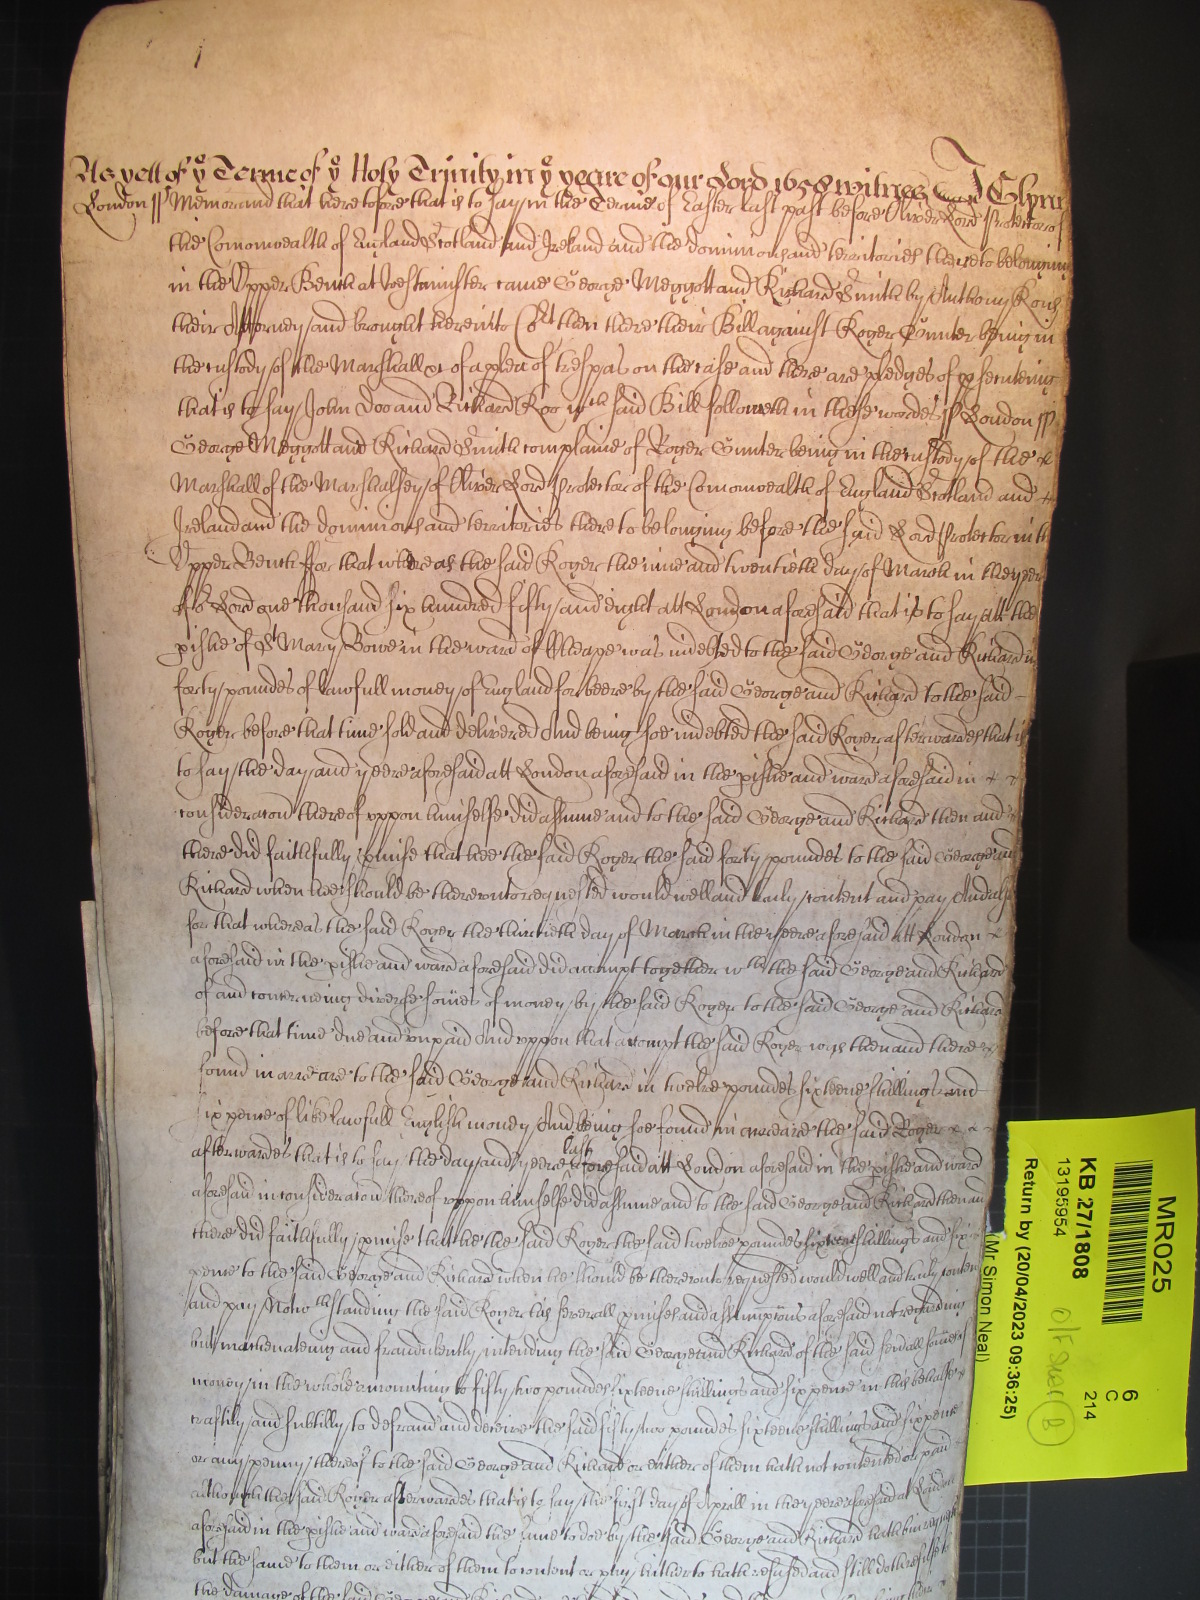 As yett of ye Terme of ye Holy Trinity in ye yeare of our Lord 1658 witnes J Glynn
London ss Memorand that heretofore that is to say in the Terme of Easter last past before Oliver Lord Protector of
the Comonwealth of England Scotland and Ireland and the dominions and territories thereto belonging
in the Upper Bench at Westminster came George Meggott and Richard Smith by Anthony
their Attorney and brought hereinto Cort then there their Bill against Roger Gunter being in
the custody of the Marshall &c of a plea of trespas on the case and there are pledges of psecuteing
that is to say John Doo and Richard Roo wch said Bill followeth in these wordes ss London ss
George Meggott and Richard Smith complaine of Roger Gunter being in the custody of the
Marshall of the Marshalsey of Oliver Lord Protector of the Comonwealth of England Scotland and
Ireland and the dominions and territories thereto belonging before the said Lord Protector in th
Upper Bench ffor that whereas the said Roger the nine and twentieth day of March in the yeer
of or Lord one thousand six hundred fifty and eight att London aforesaid that is to say att the
pishe of St Mary Bowe in the ward of Cheape was indebted to the said George and Richard in
forty poundes of lawfull money of England for beere by the said George and Richard to the said
Roger before that time sold and delivered And being soe indebted the said Roger afterwardes that is
to say the day and yeere aforesaid att London aforesaid in the pishe and ward aforesaid in
consideracon thereof uppon himselfe did assume and to the said George and Richard then and
there did faithfully pmise that hee the said Roger the said forty poundes to the said George and
Richard when hee should be thereunto requested would well and truly content and pay And also
for that whereas the said Roger the thirtieth day of March in the yeere aforesaid att London
aforesaid in the pishe and ward aforesaid did accompt together wth the said George and Richard
of and concerneing diverse somes of money by the said Roger to the said George and Richard
before that time due and unpaid And uppon that accompt the said Roger was then and there
found in arreare to the said George and Richard in twelve poundes sixteene shillings and
six pence of like lawfull English money And being soe found in arreare the said Roger
afterwardes that is to say the day and yeere last aforesaid att London aforesaid in the pishe and ward
aforesaid in consideracon thereof uppon himselfe did assume and to the said George and Richard then and
there did faithfully pmise that he the said Roger the said twelve poundes sixteene shillings and six
pence to the said George and Richard when he should be thereunto requested would well and truly content
and pay Notwthstanding the said Roger his severall pmises and assumptions aforesaid not regarding
but machinateing and fraudulently intending the said George and Richard of the said severall somes of
money in the whole amounting to fifty two poundes sixteene shillings and six pence in this behalfe
craftily and subtilly to defraud and deceive the said fifty two poundes sixteene shillings and six pence
or any penny thereof to the said George and Richard or either of them hath not contented or paid
although the said Roger afterwardes that is to say the first day of Aprill in the yeere aforesaid at London
aforesaid in the pishe and ward aforesaid the same to doe by the said George and Richard hath bin
but the same to them or either of them to content or pay hitherto hath refused and still doth refuse to
the damage of the said George and
MR025
6
C
214
KB 27/1808
13195954
Return by (20/04/2023 09:36:25)
(Mr Simon Neal)
B